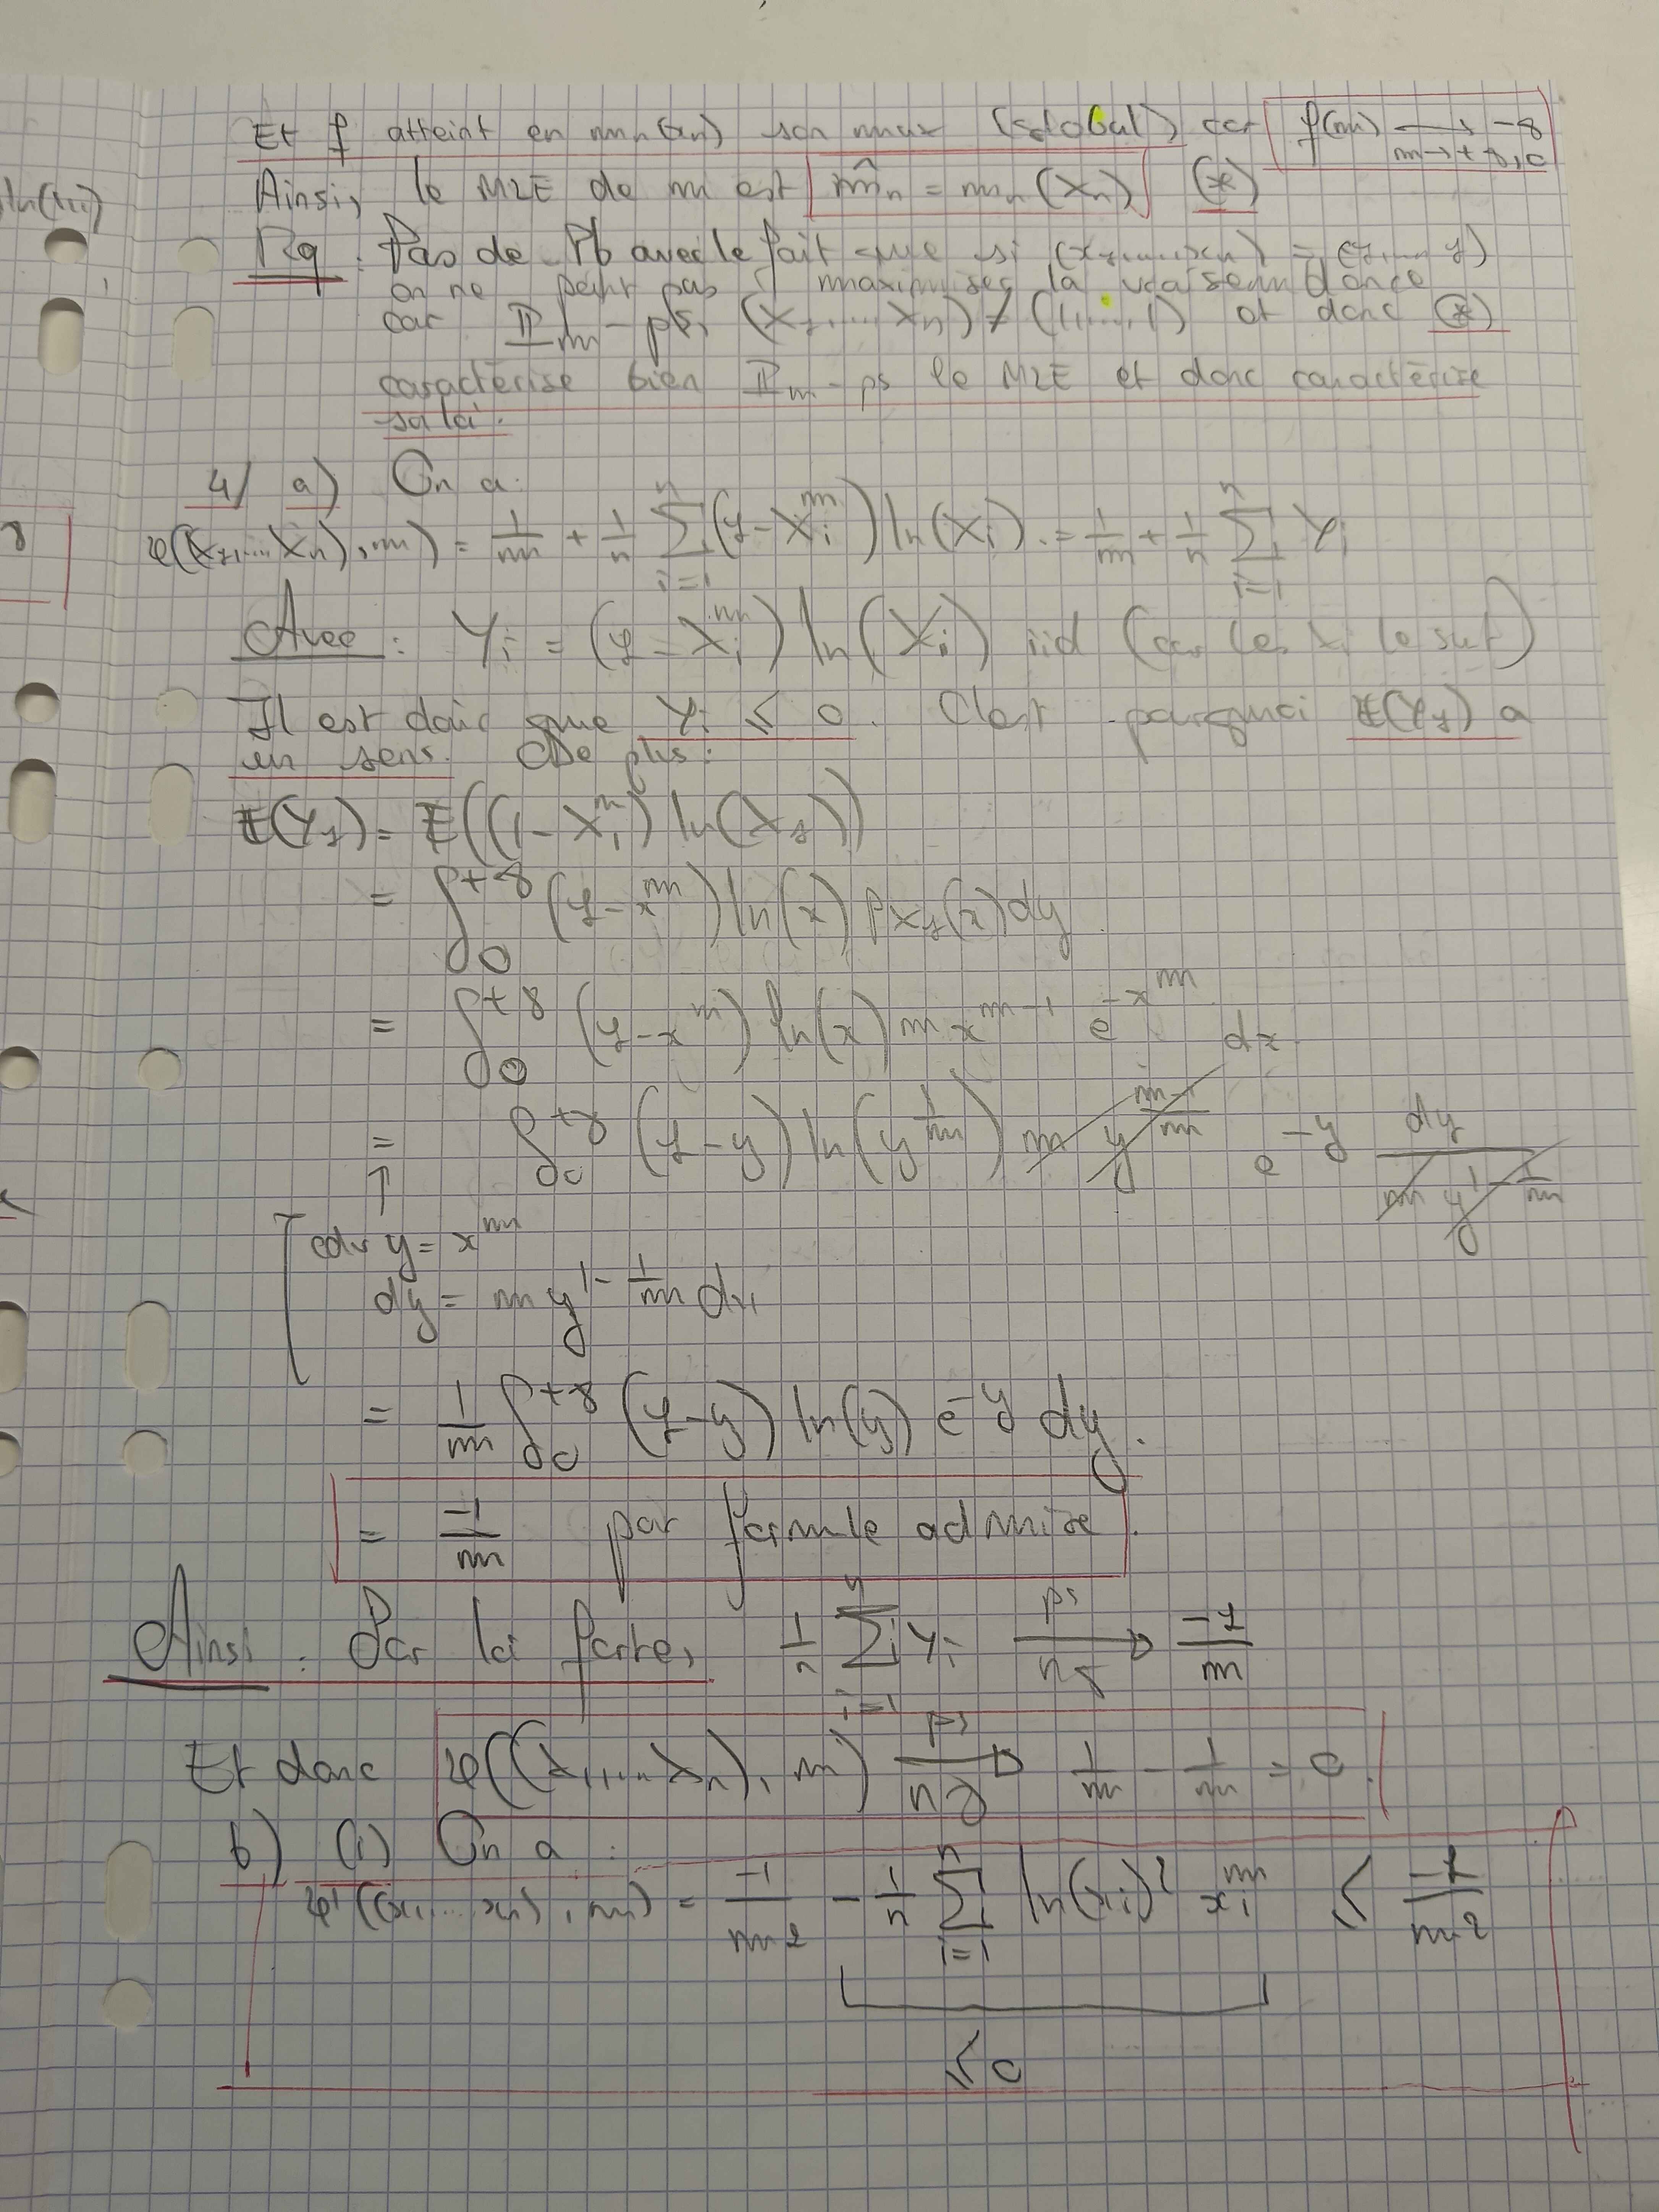 Et f atteint en mn(xn) son max (global) car f(m) → -∞
m→+∞,0
ln(xi)
Ainsi, le MLE de m est m̂n = mn(Xn) (*)
Rq : Pas de Pb avec le fait que si (x1,...,xn) = (1,...,1)
on ne peut pas maximiser la vraisemblance
car ℙm-ps, (X1,...,Xn) ≠ (1,...,1) et donc (*)
caractérise bien ℙm-ps le MLE et donc caractérise
sa loi.
4/ a) On a :
φ((X1,...,Xn),m) = 1/m + 1/n ∑_{i=1}^n (1-Xi^m) ln(Xi) = 1/m + 1/n ∑_{i=1}^n Yi
Avec : Yi = (1-Xi^m) ln(Xi) iid (car les Xi le sut)
Il est donc que Yi ≤ 0. C'est pourquoi E(Y1) a
un sens. De plus :
E(Y1) = E((1-X1^m) ln(X1))
= ∫_0^{+∞} (1-x^m) ln(x) pX1(x) dy
= ∫_0^{+∞} (1-x^m) ln(x) m x^{m-1} e^{-x^m} dx
= ∫_0^{+∞} (1-y) ln(y^{1/m}) m y^{(m-1)/m} e^{-y} dy/(m y^{1-1/m})
↑
cdv y = x^m
dy = m y^{1-1/m} dx
= 1/m ∫_0^{+∞} (1-y) ln(y) e^{-y} dy.
= -1/m par formule admise.
Ainsi : Par loi forte, 1/n ∑_{i=1}^n Yi →(ps, n∞) -1/m
Et donc φ((X1,...,Xn), m) →(ps, n∞) 1/m - 1/m = 0.
b) (i) On a :
φ'((x1,...,xn),m) = -1/m² - 1/n ∑_{i=1}^n ln(xi)² xi^m ≤ -1/m²
≤ 0